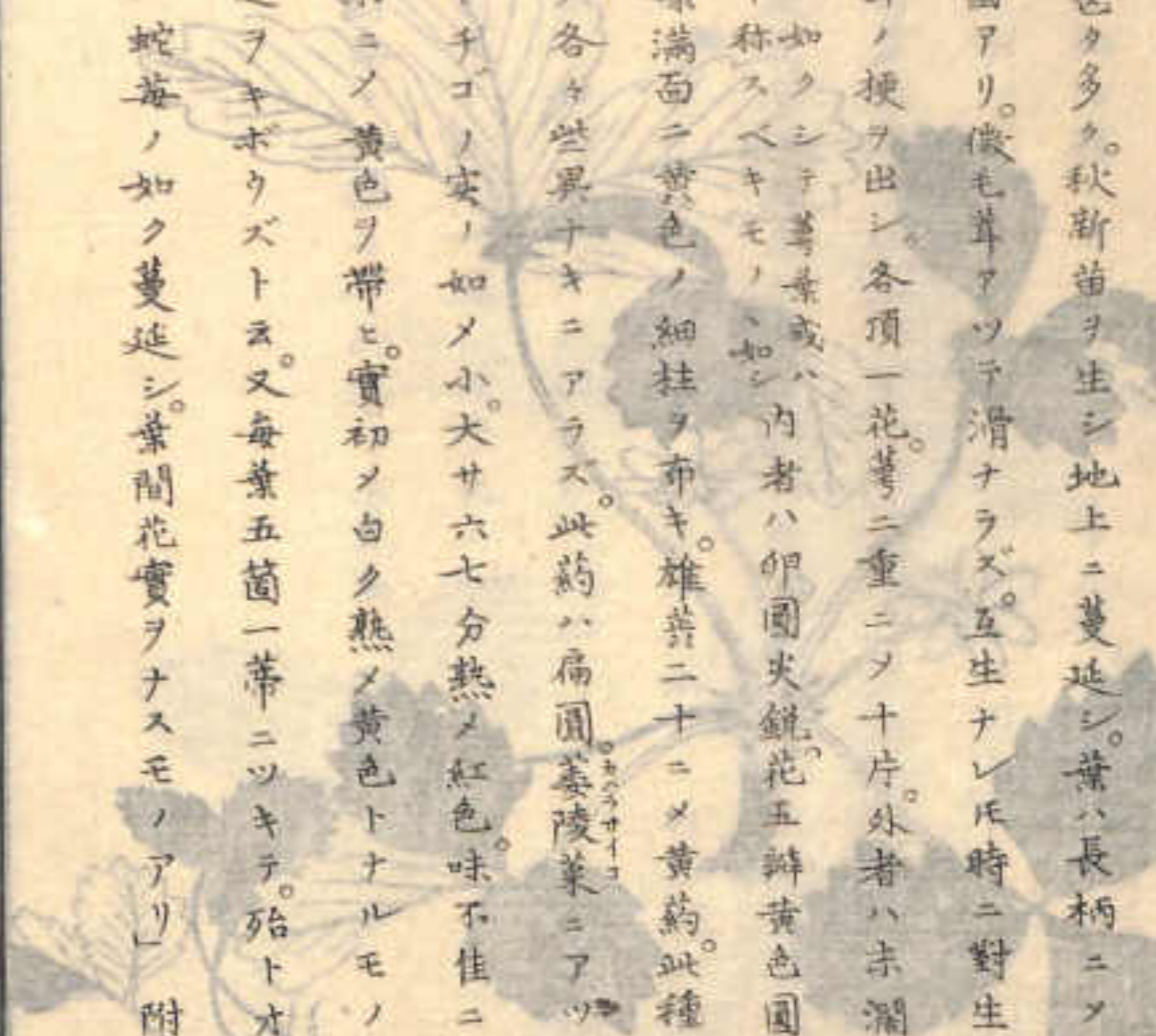 タ多ク。秋新苗ヲ生シ地上ニ蔓延シ。葉ハ長柄ニメ
アリ。微毛茸アツテ滑ナラズ。互生ナレ𪜈時ニ對生
ノ梗ヲ出シ。各頂一花。萼二重ニメ十片。外者ハ末濶
如クシテ萼葉或ハ
称スベキモノヽ如シ
内者ハ卵圓尖鋭。花五瓣黄色圓
滿面ニ黄色ノ細柱ヲ布キ。雄蕋二十ニメ黄葯。此種
各々些異ナキニアラズ。此葯ハ扁圓。萎陵菜ニアツ
カハラサイコ
チゴノ実ノ如メ小。大サ六七分熟メ紅色。味不佳ニ
ニノ黄色ヲ帶ヒ。實初メ白ク熟メ黄色トナルモノ
ヲキボウズト云。又毎葉五箇一蒂ニツキテ。殆トオ
蛇苺ノ如ク蔓延シ。葉間花實ヲナスモノアリ」附